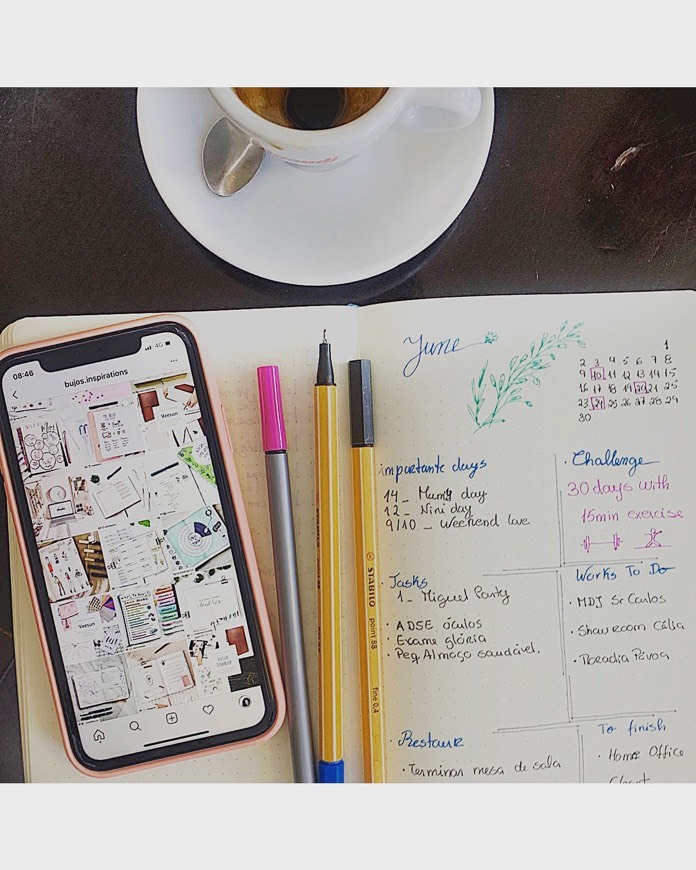 08:46
4G
bujos.inspirations
Veesun
Veesun
STABILO
point 88
fine 0,4
June
1
2 3 4 5 6 7 8
9 10 11 12 13 14 15
16 17 18 19 20 21
23 24 25 26 27 28 29
30
importante days
14_ Mum's day
12_ Nini day
9/10_ Weekend love
· Challenge
30 days with
15min exercise
· Tasks
1_ Miguel Party
· ADSE óculos
· Exame glória
· Peq Almoço saudável.
Works To Do
· MDJ Sr Carlos
· Showroom Célia
· Moradia Póvoa
· Restaur
· Terminar mesa de sala
To finish
· Home Office